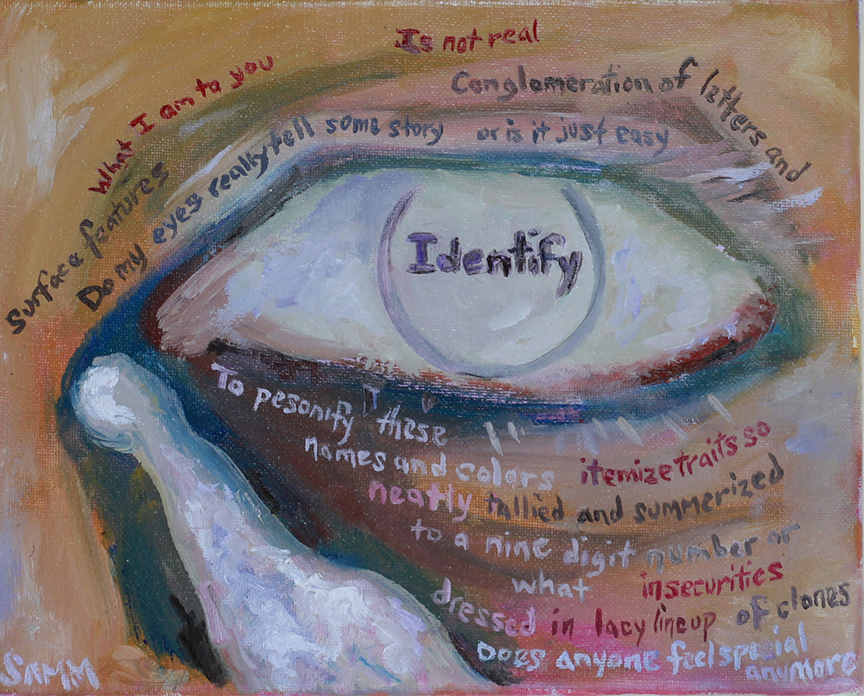 What I am to you
Is not real
Conglomeration of letters and
Surface features
Do my eyes really tell some story
or is it just easy
Identify
To pesonify these
names and colors itemize traits so
neatly tallied and summerized
to a nine digit number or
what insecurities
dressed in lacy lineup of clones
Does anyone feel special
anymore
SAMM